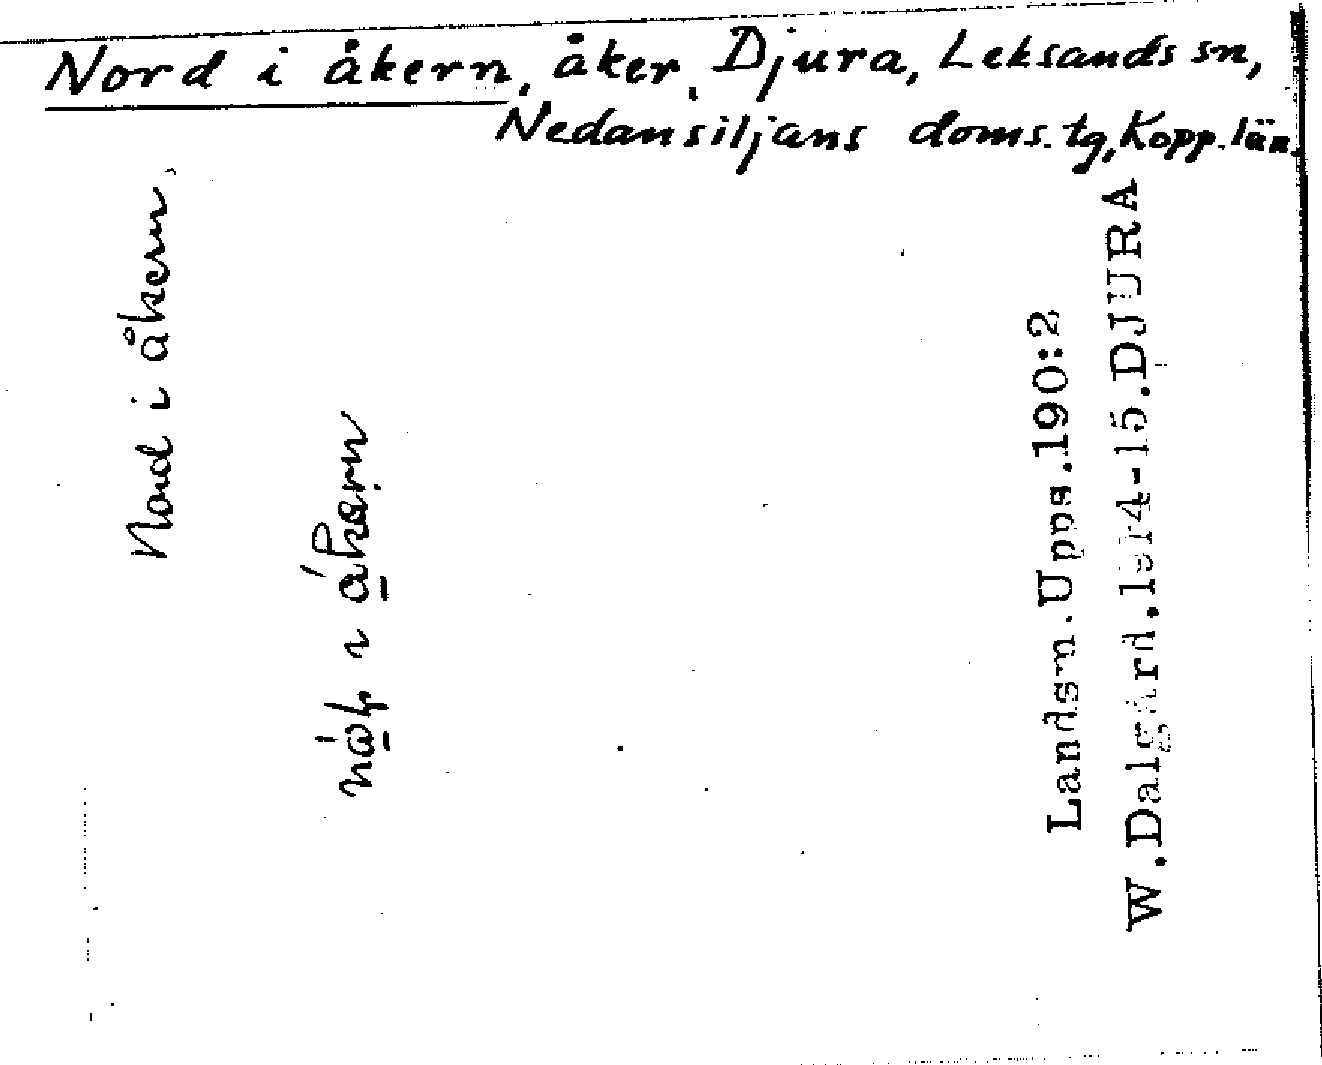 Nord i åkern, åker, Djura, Leksands sn,
Nedansiljans doms. tg, Kopp. län.
Nord i åkern,
Landsm.Upps.190:2
W.Dalgård.1914-15.DJURA